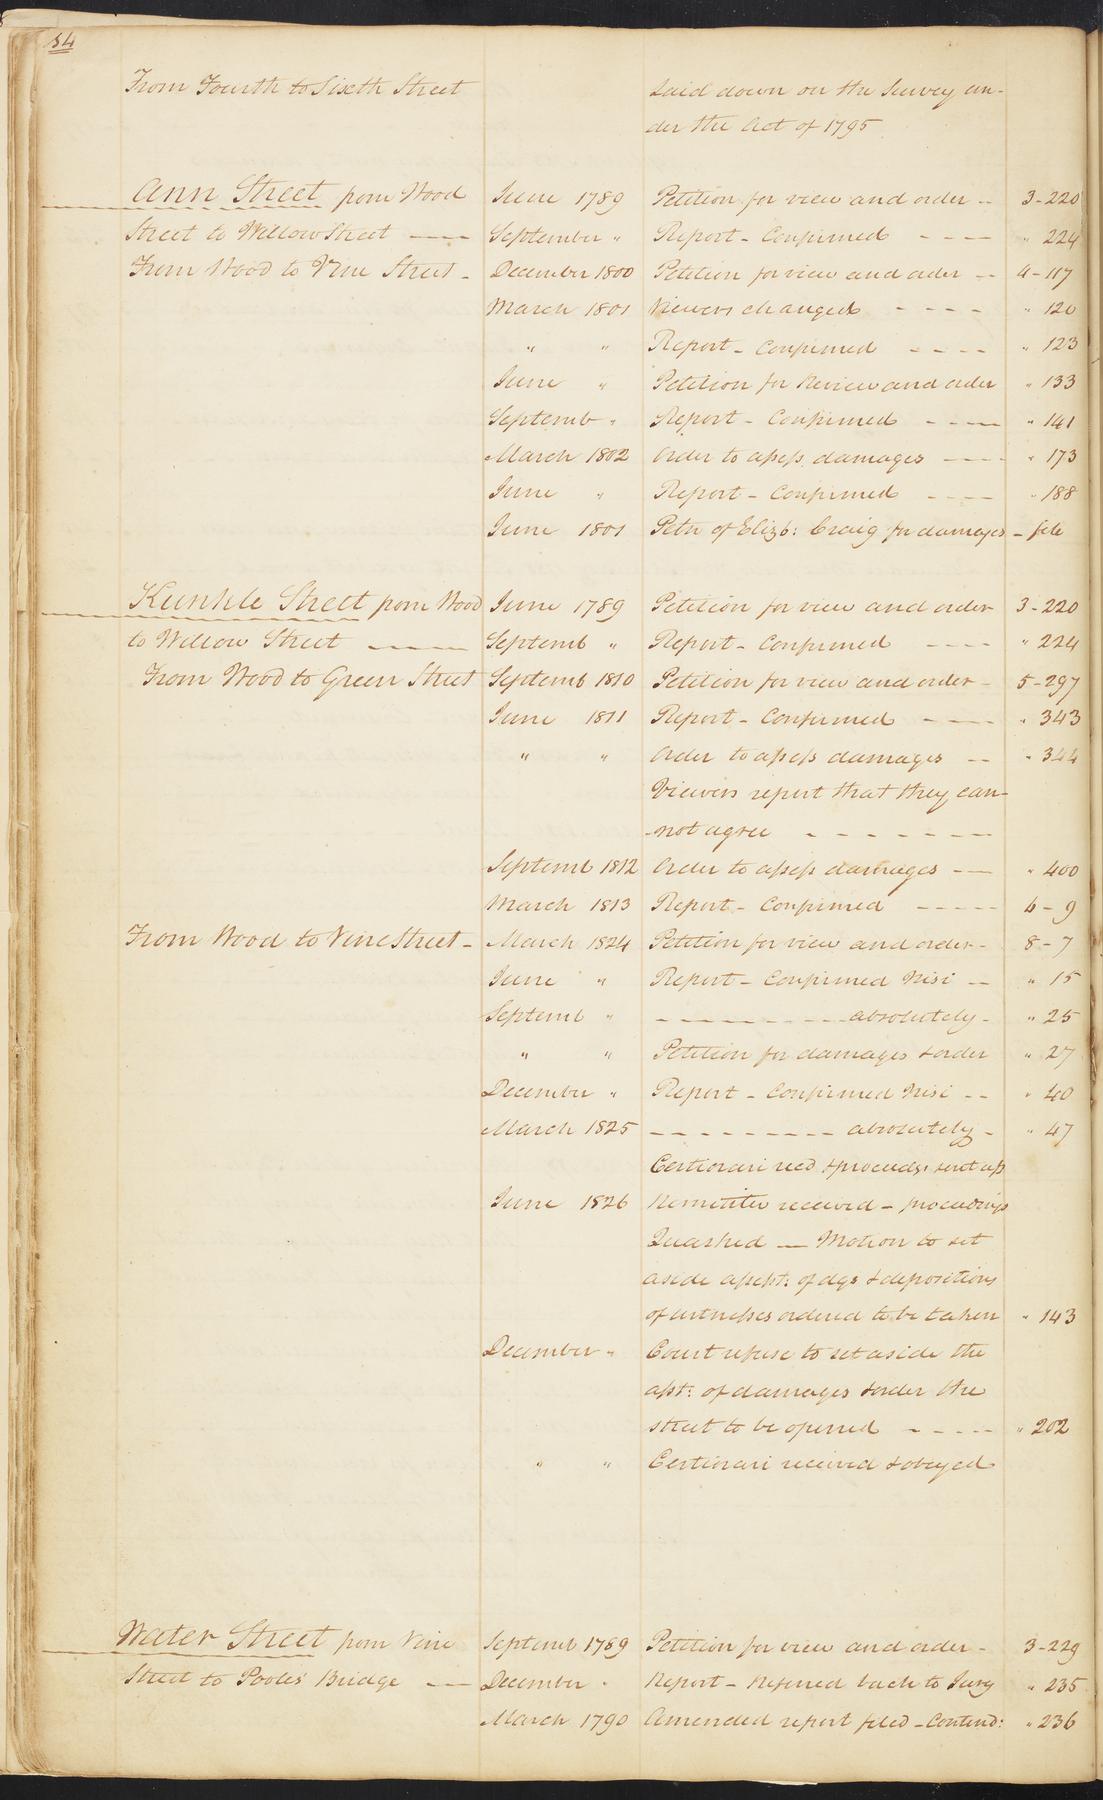 54
From Fourth to Sixth Street Laid down on the Survey un-
der the Act of 1795
Ann Street from Wood June 1789 Petition for view and order -- 3-220
Street to Willow Street ---- September " Report - Confirmed ---- " 224
From Wood to Vine Street - December 1800 Petition for view and order -- 4-117
March 1801 Viewers changed ---- " 120
" " Report - Confirmed ---- " 123
June " Petition for Review and order " 133
Septemb " Report - Confirmed ---- " 141
March 1802 Order to assess damages ---- " 173
June " Report - Confirmed ---- " 188
June 1801 Petn of Elizb: Craig for damages - file
Kunkle Street from Wood June 1789 Petition for view and order 3-220
to Willow Street ---- Septemb " Report - Confirmed ---- " 224
From Wood to Green Street Septemb 1810 Petition for view and order - 5-297
June 1811 Report - Confirmed ---- " 343
" " Order to assess damages -- " 344
Viewers report that they can-
-not agree -------
Septemb 1812 Order to assess damages -- " 400
March 1813 Report - Confirmed ----- 6-9
From Wood to Vine Street - March 1824 Petition for view and order - 8-7
June " Report - Confirmed Nisi -- " 15
Septemb " --------- absolutely - " 25
" " Petition for damages & order " 27
December " Report - Confirmed Nisi -- " 40
March 1825 --------- absolutely - " 47
Certiorari recd & proceeds: sent up
June 1826 Remititur received - proceedings
Quashed -- Motion to set
aside assesst: of dgs & depositions
of witnesses ordered to be taken " 143
December " Court refuse to set aside the
asst: of damages & order the
street to be opened ----- " 202
" " Certiorari received & obeyed
Water Street from Vine Septemb 1789 Petition for view and order - 3-229
Street to Pooles Bridge --- December " Report - Referred back to Jury " 235
March 1790 Amended report filed - Contind: " 236